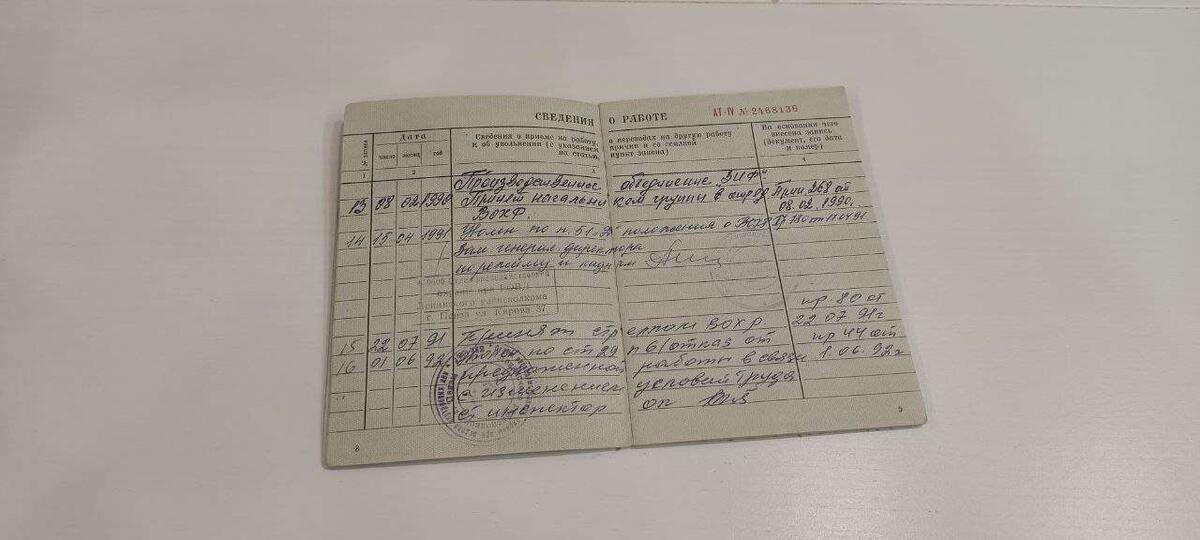 СВЕДЕНИЯ О РАБОТЕ
АТ-IV № 2468136
№ записи
Дата
число месяц год
Сведения о приеме на работу, о переводах на другую работу
и об увольнении (с указанием причин и со ссылкой
на статью, пункт закона)
На основании чего
внесена запись
(документ, его дата
и номер)
1 2 3 4
Производственное объединение „ЗИФ“
13 08 02 1990 Принят начальником группы в отряд Прик 268 от
ВОХР. 08.02.1990.
14 15 04 1991 Уволен по п. 51 положения о ВОХР
Зам генерал директора
по режиму и кадрам
РОВД
Ленинского райисполкома
г Пенза ул Кирова 37
пр. 80 от
15 22 07 91 Принят стрелком ВОХР. 22 07 91г
16 01 06 92 Уволен по ст 29 п 6 (отказ от пр 44 от
предложенной работы в связи 1.06.92г
с изменением условий труда
ст инспектор ок
8
9